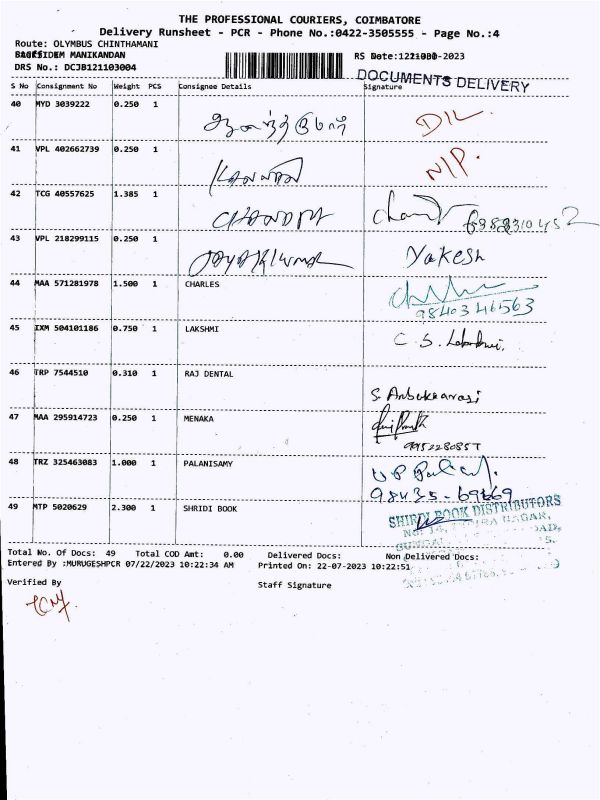 THE PROFESSIONAL COURIERS, COIMBATORE
Delivery Runsheet - PCR - Phone No.:0422-3505555 - Page No.:4
Route: OLYMBUS CHINTHAMANI
MANIKANDAN RS Date: -2023
DRS No.: DCJB121103004
DOCUMENTS DELIVERY
S No Consignment No Weight PCS Consignee Details Signature
40 MYD 3039222 0.250 1 ஆனந்த குமார் DIL.
41 VPL 402662739 0.250 1 KANNAN N/P.
42 TCG 40557625 1.385 1 CHANDRA
43 VPL 218299115 0.250 1 JAYAKUMAR Yakesh
44 MAA 571281978 1.500 1 CHARLES
45 IXM 504101186 0.750 1 LAKSHMI C. S.
46 TRP 7544510 0.310 1 RAJ DENTAL S.
47 MAA 295914723 0.250 1 MENAKA
48 TRZ 325463083 1.000 1 PALANISAMY
49 MTP 5020629 2.300 1 SHRIDI BOOK
SHIRDI BOOK DISTRIBUTORS
Total No. Of Docs: 49 Total COD Amt: 0.00 Delivered Docs: Non Delivered Docs:
Entered By :MURUGESHPCR 07/22/2023 10:22:34 AM Printed On: 22-07-2023 10:22:51
Verified By Staff Signature